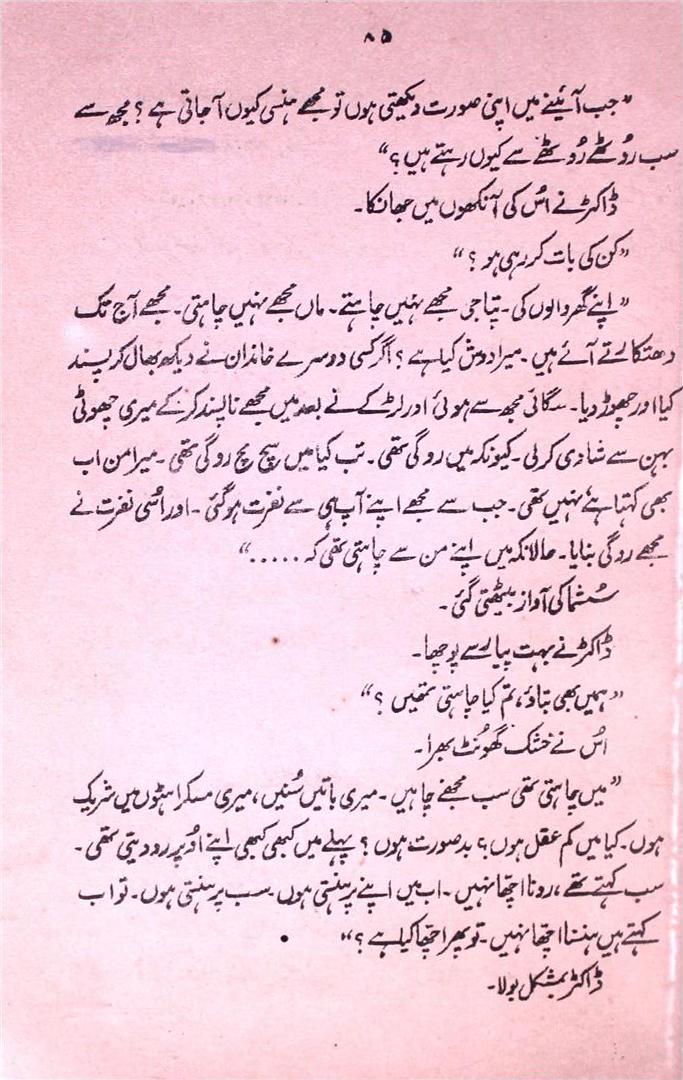 ۸۵
”جب آئینے میں اپنی صورت دیکھتی ہوں تو مجھے ہنسی کیوں آجاتی ہے؟ مجھ سے
سب رُوٹھے رُوٹھے سے کیوں رہتے ہیں؟“
ڈاکٹر نے اُس کی آنکھوں میں جھانکا۔
”کن کی بات کر رہی ہو؟“
”اپنے گھر والوں کی۔ پتاجی مجھے نہیں چاہتے۔ ماں مجھے نہیں چاہتی۔ مجھے آج تک
دھتکارتے آئے ہیں۔ میرا دوش کیا ہے؟ اگر کسی دوسرے خاندان نے دیکھ بھال کر پسند
کیا اور چھوڑ دیا۔ سگائی مجھ سے ہوئی اور لڑکے نے بعد میں مجھے ناپسند کر کے میری چھوٹی
بہن سے شادی کر لی۔ کیونکہ میں روگی تھی۔ تب کیا میں سچ مچ روگی تھی۔ میرا من اب
بھی کہتا ہے نہیں تھی۔ جب سے مجھے اپنے آپ ہی سے نفرت ہوگئی۔ اور اُسی نفرت نے
مجھے روگی بنایا۔ حالانکہ میں اپنے من سے چاہتی تھی کہ .....“
سُشما کی آواز بیٹھتی گئی۔
ڈاکٹر نے بہت پیار سے پوچھا۔
”ہمیں بھی بتاؤ، تم کیا چاہتی تھیں؟“
اُس نے خشک گھونٹ بھرا۔
”میں چاہتی تھی سب مجھے چاہیں۔ میری باتیں سُنیں، میری مسکراہٹوں میں شریک
ہوں۔ کیا میں کم عقل ہوں؟ بدصورت ہوں؟ پہلے میں کبھی کبھی اپنے اوُپر رو دیتی تھی۔
سب کہتے تھے، رونا اچھا نہیں۔ اب میں اپنے پر ہنستی ہوں۔ سب پر ہنستی ہوں۔ تو اب
کہتے ہیں ہنسنا اچھا نہیں۔ تو پھر اچھا کیا ہے؟“
ڈاکٹر بمشکل بولا۔